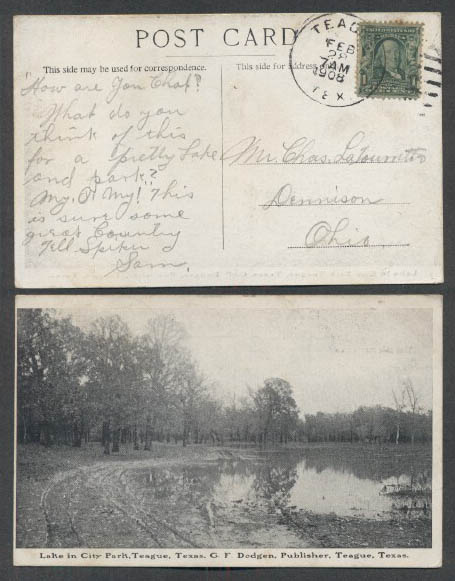 POST CARD
This side may be used for correspondence.
This side for address
TEAG
FEB
AM
1908
TEX
How are you Chat?
What do you
think of this
for a pretty Lake
and park?
My, O My! This
is sure some
great Country
Tell Spiker
Sam.
Mr. Chas.
Dennison
Ohio
Lake in City Park, Teague, Texas. G. F. Dodgen, Publisher, Teague, Texas.